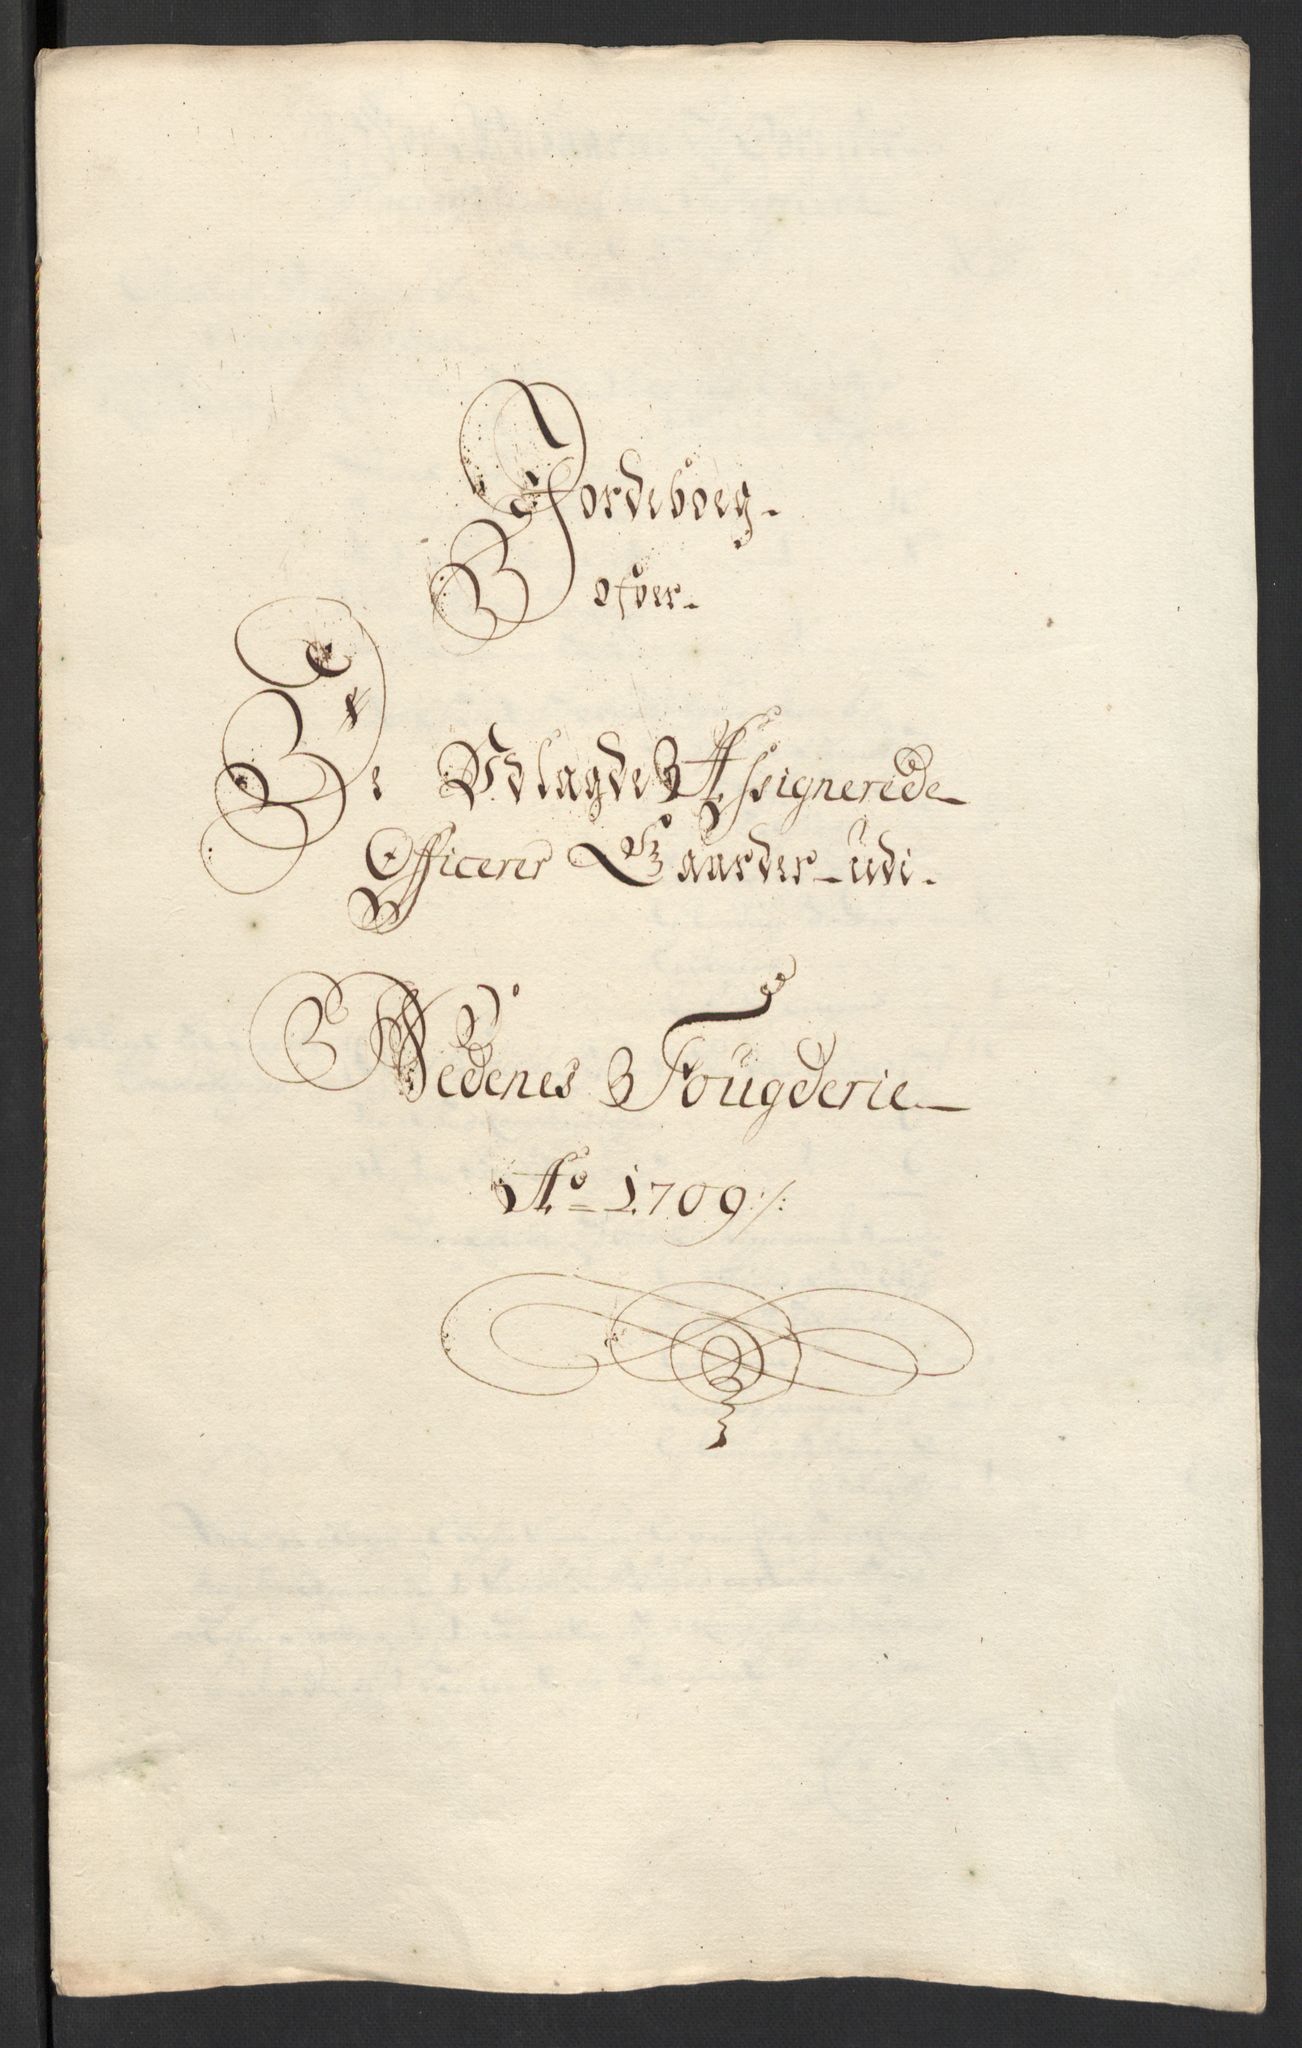 Jordeboeg
ofver
De Udlagde Assignerede
Officerer Gaarder udi
Nedenes Fougderie
Ao 1709